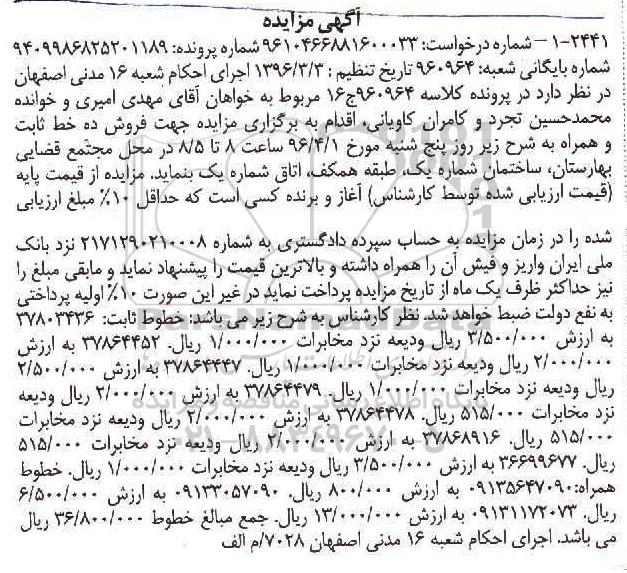 آگهی مزایده
۱-۲۴۴۱ – شماره درخواست: ۹۶۱۰۴۶۶۸۸۱۶۰۰۰۳۳ شماره پرونده: ۹۴۰۹۹۸۶۸۲۵۲۰۱۱۸۹
شماره بایگانی شعبه: ۹۶۰۹۶۴ تاریخ تنظیم : ۱۳۹۶/۳/۳ اجرای احکام شعبه ۱۶ مدنی اصفهان
در نظر دارد در پرونده کلاسه ۹۶۰۹۶۴ج۱۶ مربوط به خواهان آقای مهدی امیری و خوانده
محمدحسین تجرد و کامران کاویانی، اقدام به برگزاری مزایده جهت فروش ده خط ثابت
و همراه به شرح زیر روز پنج شنبه مورخ ۹۶/۴/۱ ساعت ۸ تا ۸/۵ در محل مجتمع قضایی
بهارستان، ساختمان شماره یک، طبقه همکف، اتاق شماره یک بنماید. مزایده از قیمت پایه
(قیمت ارزیابی شده توسط کارشناس) آغاز و برنده کسی است که حداقل ۱۰٪ مبلغ ارزیابی
شده را در زمان مزایده به حساب سپرده دادگستری به شماره ۲۱۷۱۲۹۰۲۱۰۰۰۸ نزد بانک
ملی ایران واریز و فیش آن را همراه داشته و بالاترین قیمت را پیشنهاد نماید و مابقی مبلغ را
نیز حداکثر ظرف یک ماه از تاریخ مزایده پرداخت نماید در غیر این صورت ۱۰٪ اولیه پرداختی
به نفع دولت ضبط خواهد شد. نظر کارشناس به شرح زیر می باشد: خطوط ثابت: ۳۷۸۰۳۴۳۶
به ارزش ۳/۵۰۰/۰۰۰ ریال ودیعه نزد مخابرات ۱/۰۰۰/۰۰۰ ریال. ۳۷۸۶۴۴۵۲ به ارزش
۲/۰۰۰/۰۰۰ ریال ودیعه نزد مخابرات ۱/۰۰۰/۰۰۰ ریال. ۳۷۸۶۴۴۴۷ به ارزش ۲/۵۰۰/۰۰۰
ریال ودیعه نزد مخابرات ۱/۰۰۰/۰۰۰ ریال. ۳۷۸۶۴۴۷۹ به ارزش ۲/۰۰۰/۰۰۰ ریال ودیعه
نزد مخابرات ۵۱۵/۰۰۰ ریال. ۳۷۸۶۴۴۷۸ به ارزش ۲/۰۰۰/۰۰۰ ریال ودیعه نزد مخابرات
۵۱۵/۰۰۰ ریال. ۳۷۸۶۸۹۱۶ به ارزش ۲/۰۰۰/۰۰۰ ریال ودیعه نزد مخابرات ۵۱۵/۰۰۰
ریال. ۳۶۶۹۹۶۷۷ به ارزش ۳/۵۰۰/۰۰۰ ریال ودیعه نزد مخابرات ۱/۰۰۰/۰۰۰ ریال. خطوط
همراه:۰۹۱۳۵۶۴۷۰۹۰ به ارزش ۸۰۰/۰۰۰ ریال. ۰۹۱۳۳۰۵۷۰۹۰ به ارزش ۶/۵۰۰/۰۰۰
ریال. ۰۹۱۳۱۱۷۲۰۷۳ به ارزش ۱۳/۰۰۰/۰۰۰ ریال. جمع مبالغ خطوط ۳۶/۸۰۰/۰۰۰ ریال
می باشد. اجرای احکام شعبه ۱۶ مدنی اصفهان ۷۰۲۸/م الف